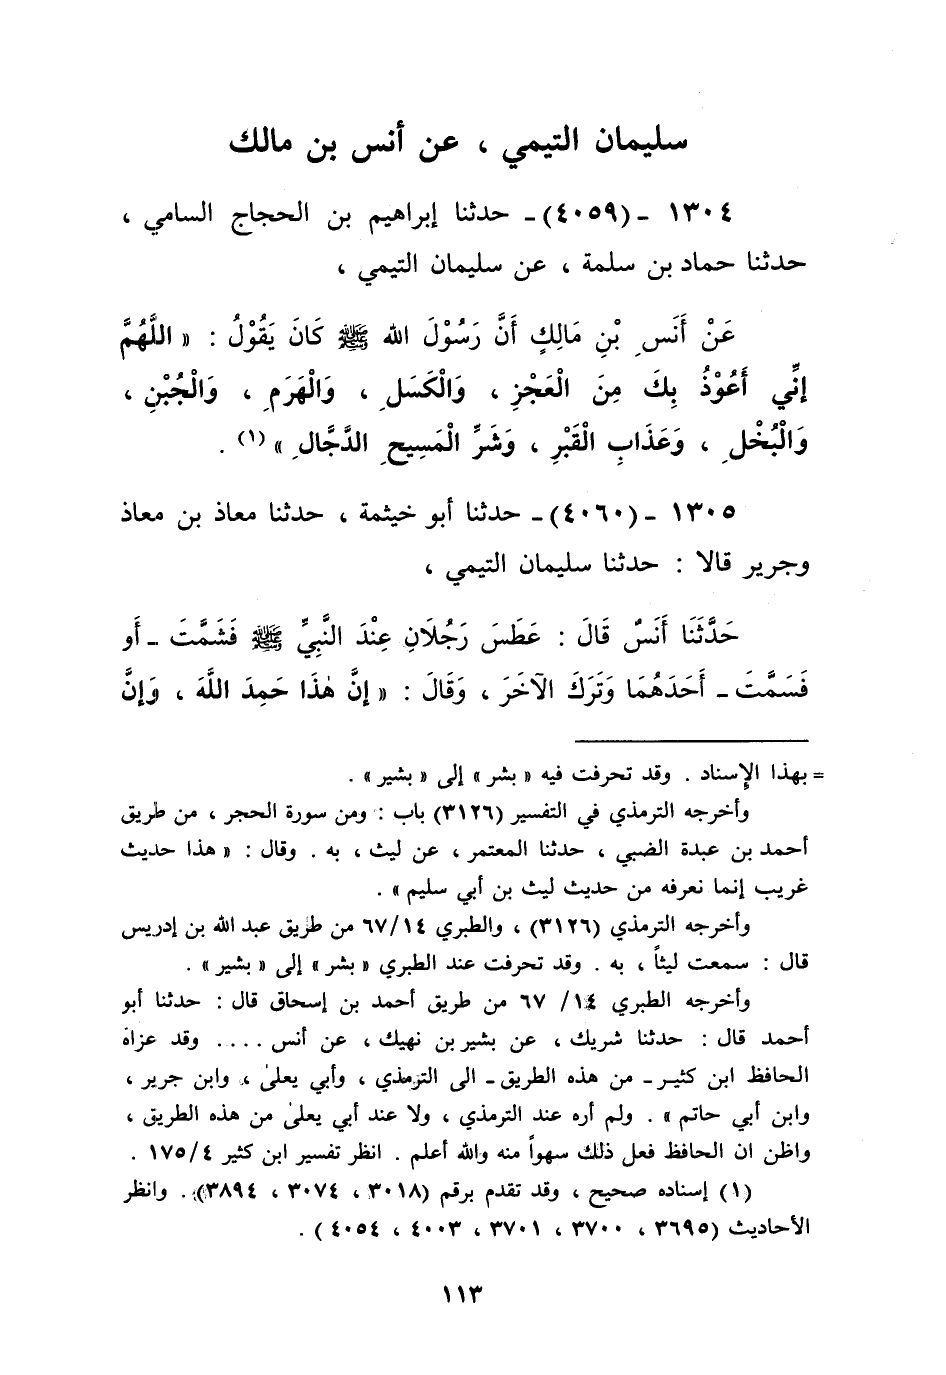 سليمان التيمي ، عن أنس بن مالك
١٣٠٤ ـ (٤٠٥٩) ـ حدثنا إبراهيم بن الحجاج السامي ،
حدثنا حماد بن سلمة ، عن سليمان التيمي ،
عَنْ أَنَسِ بْنِ مَالِكٍ أَنَّ رَسُوْلَ الله ﷺ كَانَ يَقُوْلُ : « اللَّهُمَّ
إِنِّي أَعُوْذُ بِكَ مِنَ الْعَجْزِ ، وَالْكَسَلِ ، وَالْهَرَمِ ، وَالْجُبْنِ ،
وَالْبُخْلِ ، وَعَذَابِ الْقَبْرِ ، وَشَرِّ الْمَسِيحِ الدَّجَّالِ » (١) .
١٣٠٥ ـ (٤٠٦٠) ـ حدثنا أبو خيثمة ، حدثنا معاذ بن معاذ
وجرير قالا : حدثنا سليمان التيمي ،
حَدَّثَنَا أَنَسٌ قَالَ : عَطَسَ رَجُلَانِ عِنْدَ النَّبِيِّ ﷺ فَشَمَّتَ ـ أَو
فَسَمَّتَ ـ أَحَدَهُمَا وَتَرَكَ الآخَرَ ، وَقَالَ : « إِنَّ هٰذَا حَمِدَ اللَّهَ ، وَإِنَّ
= بهذا الإسناد . وقد تحرفت فيه « بشر » إلى « بشير » .
وأخرجه الترمذي في التفسير (٣١٢٦) باب : ومن سورة الحجر ، من طريق
أحمد بن عبدة الضبي ، حدثنا المعتمر ، عن ليث ، به . وقال : « هذا حديث
غريب إنما نعرفه من حديث ليث بن أبي سليم » .
وأخرجه الترمذي (٣١٢٦) ، والطبري ٦٧/١٤ من طريق عبد الله بن إدريس
قال : سمعت ليثاً ، به . وقد تحرفت عند الطبري « بشر » إلى « بشير » .
وأخرجه الطبري ١٤/ ٦٧ من طريق أحمد بن إسحاق قال : حدثنا أبو
أحمد قال : حدثنا شريك ، عن بشير بن نهيك ، عن أنس .... وقد عزاه
الحافظ ابن كثير ـ من هذه الطريق ـ الى الترمذي ، وأبي يعلىٰ ، وابن جرير ،
وابن أبي حاتم » . ولم أره عند الترمذي ، ولا عند أبي يعلىٰ من هذه الطريق ،
واظن ان الحافظ فعل ذلك سهواً منه والله أعلم . انظر تفسير ابن كثير ١٧٥/٤ .
(١) إسناده صحيح ، وقد تقدم برقم (٣٠١٨ ، ٣٠٧٤ ، ٣٨٩٤) . وانظر
الأحاديث (٣٦٩٥ ، ٣٧٠٠ ، ٣٧٠١ ، ٤٠٠٣ ، ٤٠٥٤ ) .
١١٣